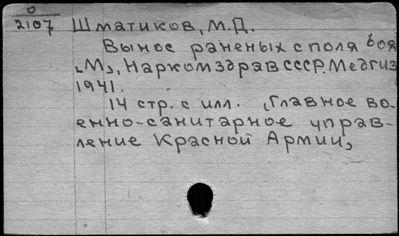 0
2107 Шматиков, М.Д.
Вынос раненых с поля боя
"М", Наркомздрав СССР. Медгиз
1941.
14 стр. с илл. „Главное во-
енно-санитарное управ-
ление Красной Армии"